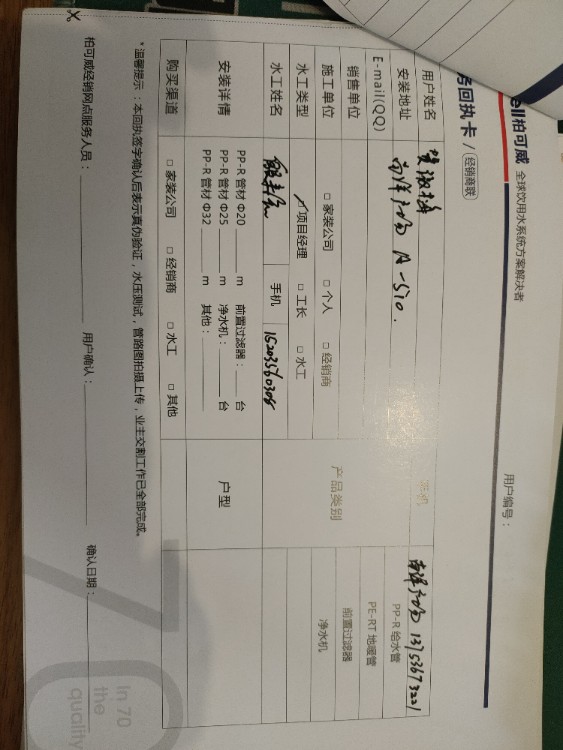 ell柏可威 全球饮用水系统方案解决者
务回执卡 / 经销商联
用户编号：
用户姓名
安装地址 A-510.
手机 13753673221
E-mail(QQ)
销售单位
施工单位 □ 家装公司 □ 个人 □ 经销商
水工类型 项目经理 □ 工长 □ 水工
水工姓名 手机 15203560305
产品类别
PP-R 给水管
PE-RT 地暖管
前置过滤器
净水机
安装详情
PP-R 管材 Φ20 m 前置过滤器： 台
PP-R 管材 Φ25 m 净水机： 台
PP-R 管材 Φ32 m 其他：
户型
购买渠道 □ 家装公司 □ 经销商 □ 水工 □ 其他
*温馨提示：本回执签字确认后表示真伪验证，水压测试，管路图拍摄上传，业主交割工作已全部完成。
柏可威经销网点服务人员： 用户确认： 确认日期：
70
In 70
the
quality